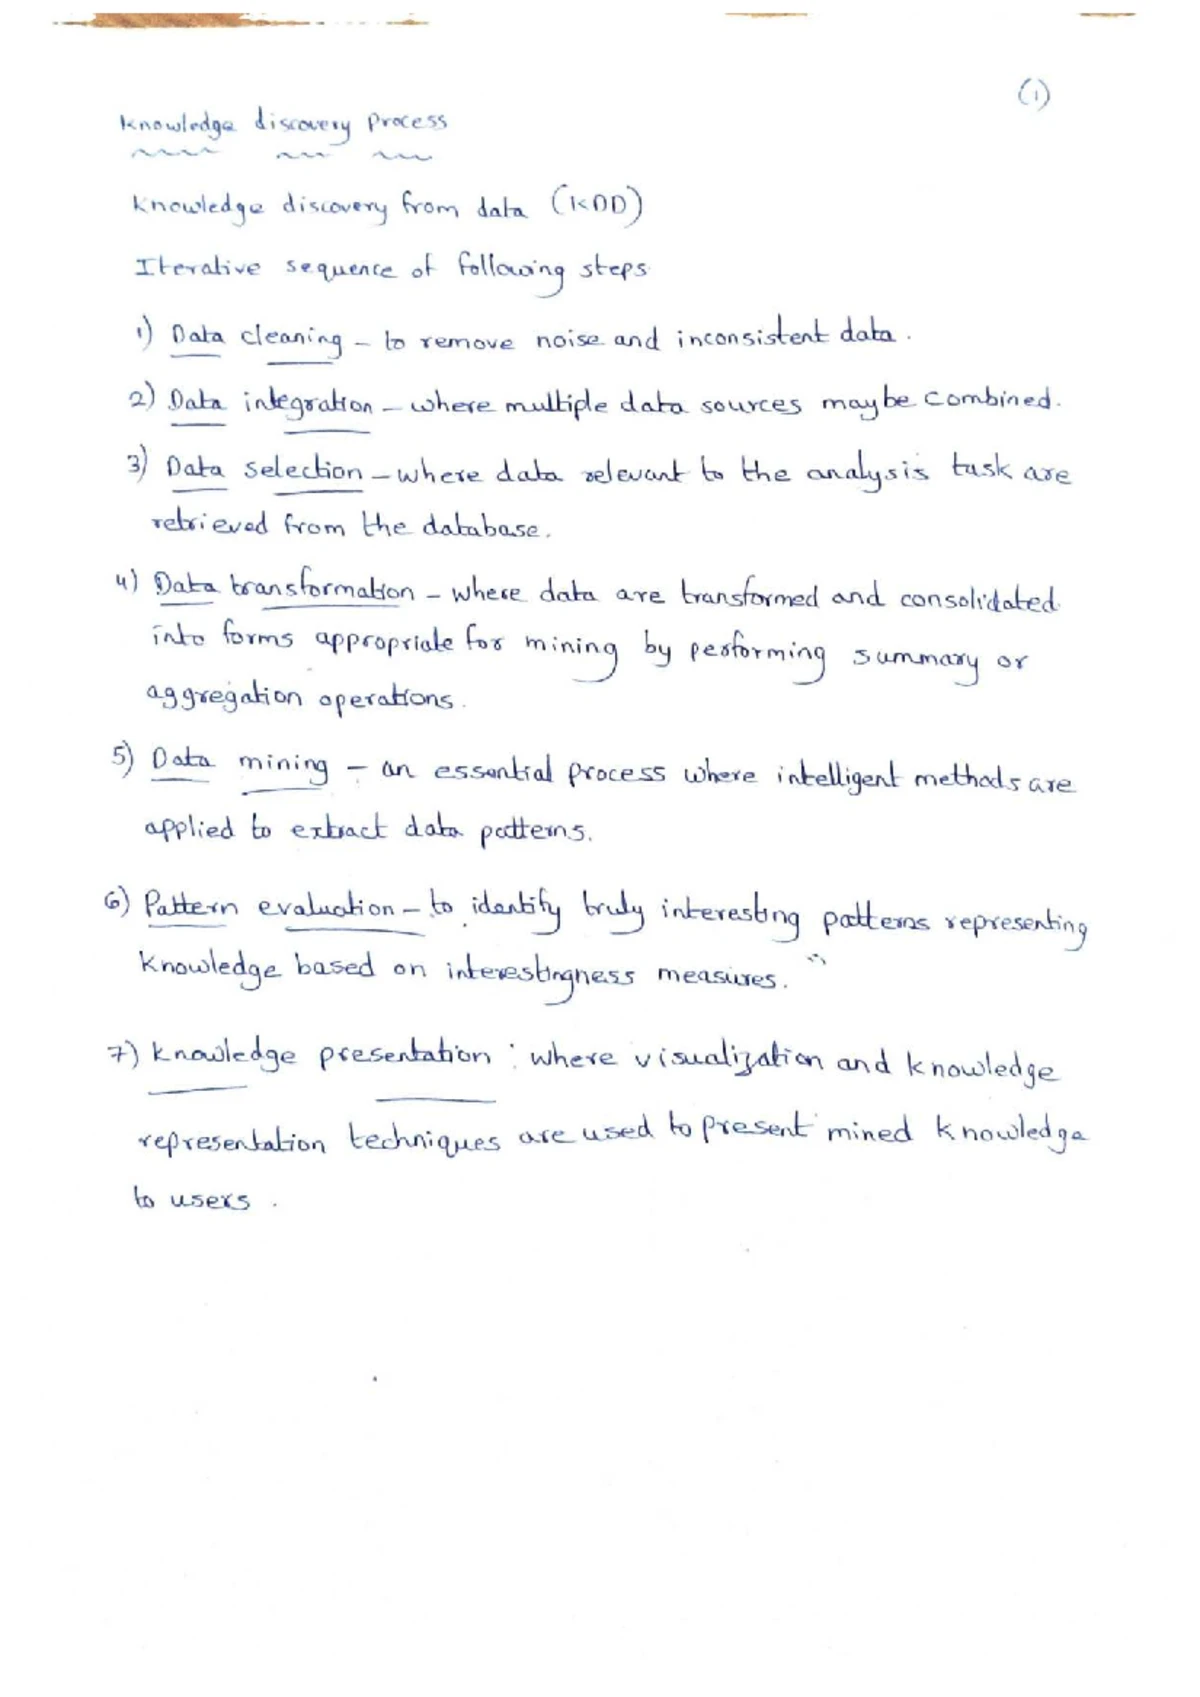 (1)
Knowledge discovery Process
Knowledge discovery from data (KDD)
Iterative sequence of following steps
1) Data cleaning - to remove noise and inconsistent data.
2) Data integration - where multiple data sources maybe combined.
3) Data selection - where data relevant to the analysis task are
retrieved from the database.
4) Data transformation - where data are transformed and consolidated
into forms appropriate for mining by performing summary or
aggregation operations.
5) Data mining - an essential process where intelligent methods are
applied to extract data patterns.
6) Pattern evaluation - to identify truly interesting patterns representing
knowledge based on interestingness measures.
7) Knowledge presentation : where visualization and knowledge
representation techniques are used to present mined knowledge
to users.